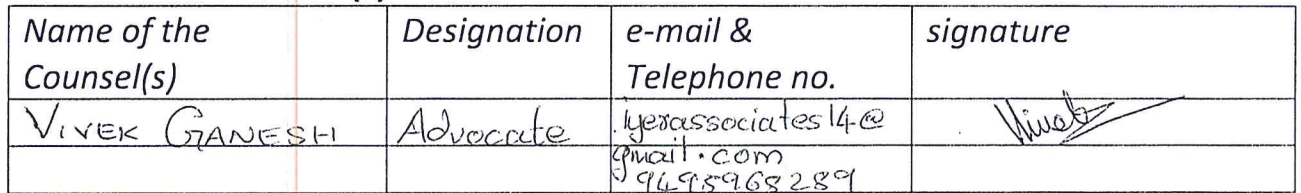 Name of the Counsel(s) Designation e-mail & Telephone no. signature
VIVEK GANESH Advocate iyerassociates14@
gmail.com
9495968289
Vivek